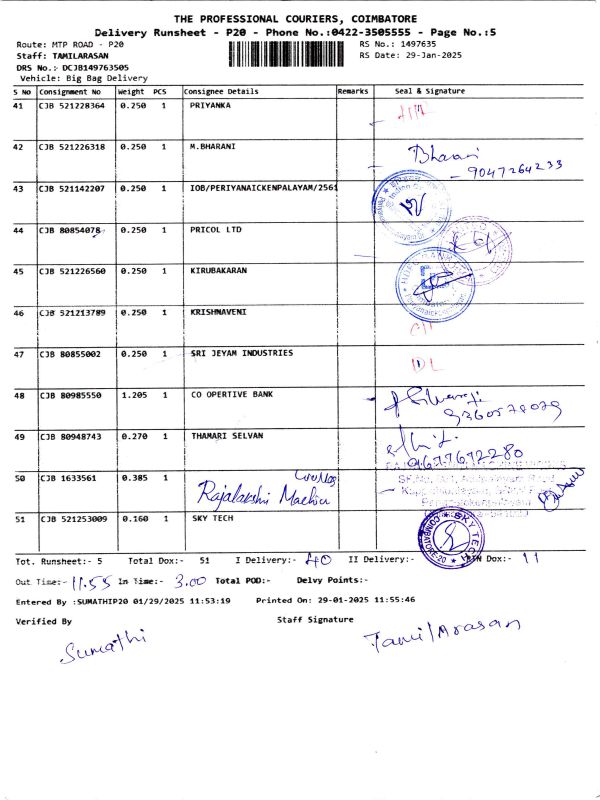 THE PROFESSIONAL COURIERS, COIMBATORE
Delivery Runsheet - P20 - Phone No.:0422-3505555 - Page No.:5
Route: MTP ROAD - P20 RS No.: 1497635
Staff: TAMILARASAN RS Date: 29-Jan-2025
DRS No.: DCJB149763505
Vehicle: Big Bag Delivery
S No Consignment No Weight PCS Consignee Details Remarks Seal & Signature
41 CJB 521228364 0.250 1 PRIYANKA
42 CJB 521226318 0.250 1 M.BHARANI Bharani
- 9047264233
43 CJB 521142207 0.250 1 IOB/PERIYANAICKENPALAYAM/2561
44 CJB 80854078 0.250 1 PRICOL LTD
45 CJB 521226560 0.250 1 KIRUBAKARAN
46 CJB 521213789 0.250 1 KRISHNAVENI
47 CJB 80855002 0.250 1 SRI JEYAM INDUSTRIES IDL
48 CJB 80985550 1.205 1 CO OPERTIVE BANK
9360578079
49 CJB 80948743 0.270 1 THAMARI SELVAN
9677672280
50 CJB 1633561 0.385 1 Rajalakshi
51 CJB 521253009 0.160 1 SKY TECH SKY TECH COIMBATORE-20
Tot. Runsheet:- 5 Total Dox:- 51 I Delivery:- 40 II Delivery:- Dox:- 11
Out Time:- 11.55 In Time:- 3.00 Total POD:- Delvy Points:-
Entered By :SUMATHIP20 01/29/2025 11:53:19 Printed On: 29-01-2025 11:55:46
Verified By Staff Signature
Sumathi TamilArasan